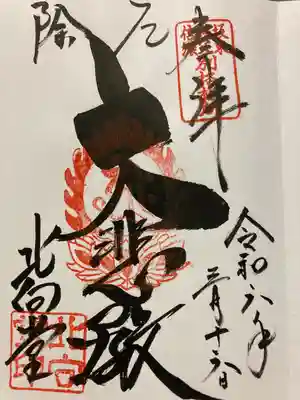 厄除
奉拝
令和六年
三月十六日
大悲殿
北向堂